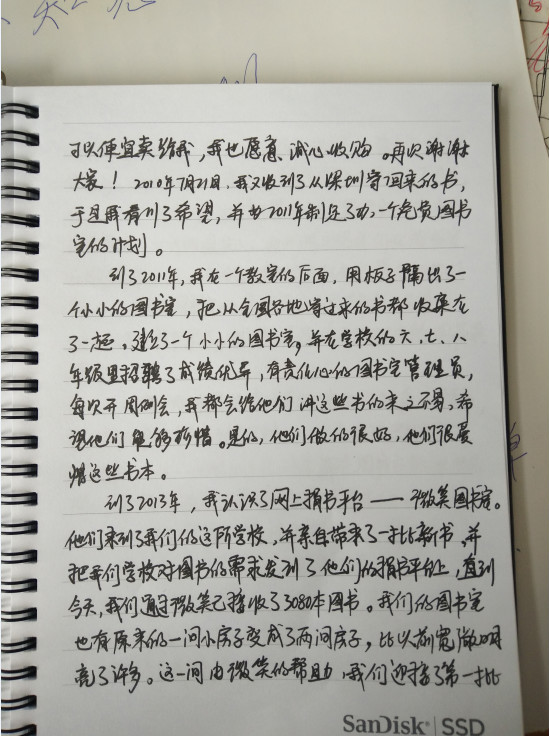 可以便宜卖给我，我也愿意诚心收购。再次谢谢
大家！2010年7月21日，我又收到了从深圳寄回来的书，
于是我看到了希望，并由2011年制定了办一个免费图书
室的计划。
到了2011年，我在一个教室的后面，用板子隔出了一
个小小的图书室，把从全国各地寄过来的书都收集在
了一起。建了一个小小的图书室，并在学校的六、七、八
年级里招聘了成绩优异，有责任心的图书室管理员，
每次开周例会，我都会给他们讲这些书的来之不易，希
望他们能够珍惜。是的，他们做的很好，他们很爱
惜这些书本。
到了2013年，我认识了网上捐书平台——微笑图书室。
他们来到了我们的这所学校，并亲自带来了一批新书，并
把我们学校对图书的需求发到了他们的捐书平台上，直到
今天，我们通过微笑已接收了3080本图书。我们的图书室
也有原来的一间小房子变成了两间房子，比以前宽敞明
亮了许多。这一间由微笑的帮助，我们迎接了第一批
SanDisk SSD